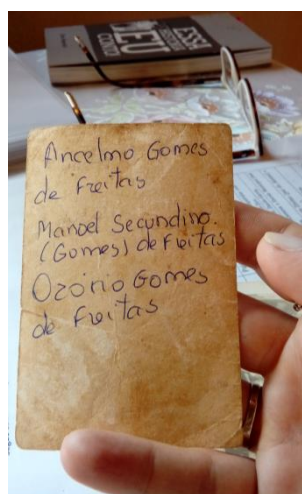 ESSA
EU
Ancelmo Gomes
de Freitas
Manoel Secundino.
(Gomes) de Freitas
Ozório Gomes
de Freitas